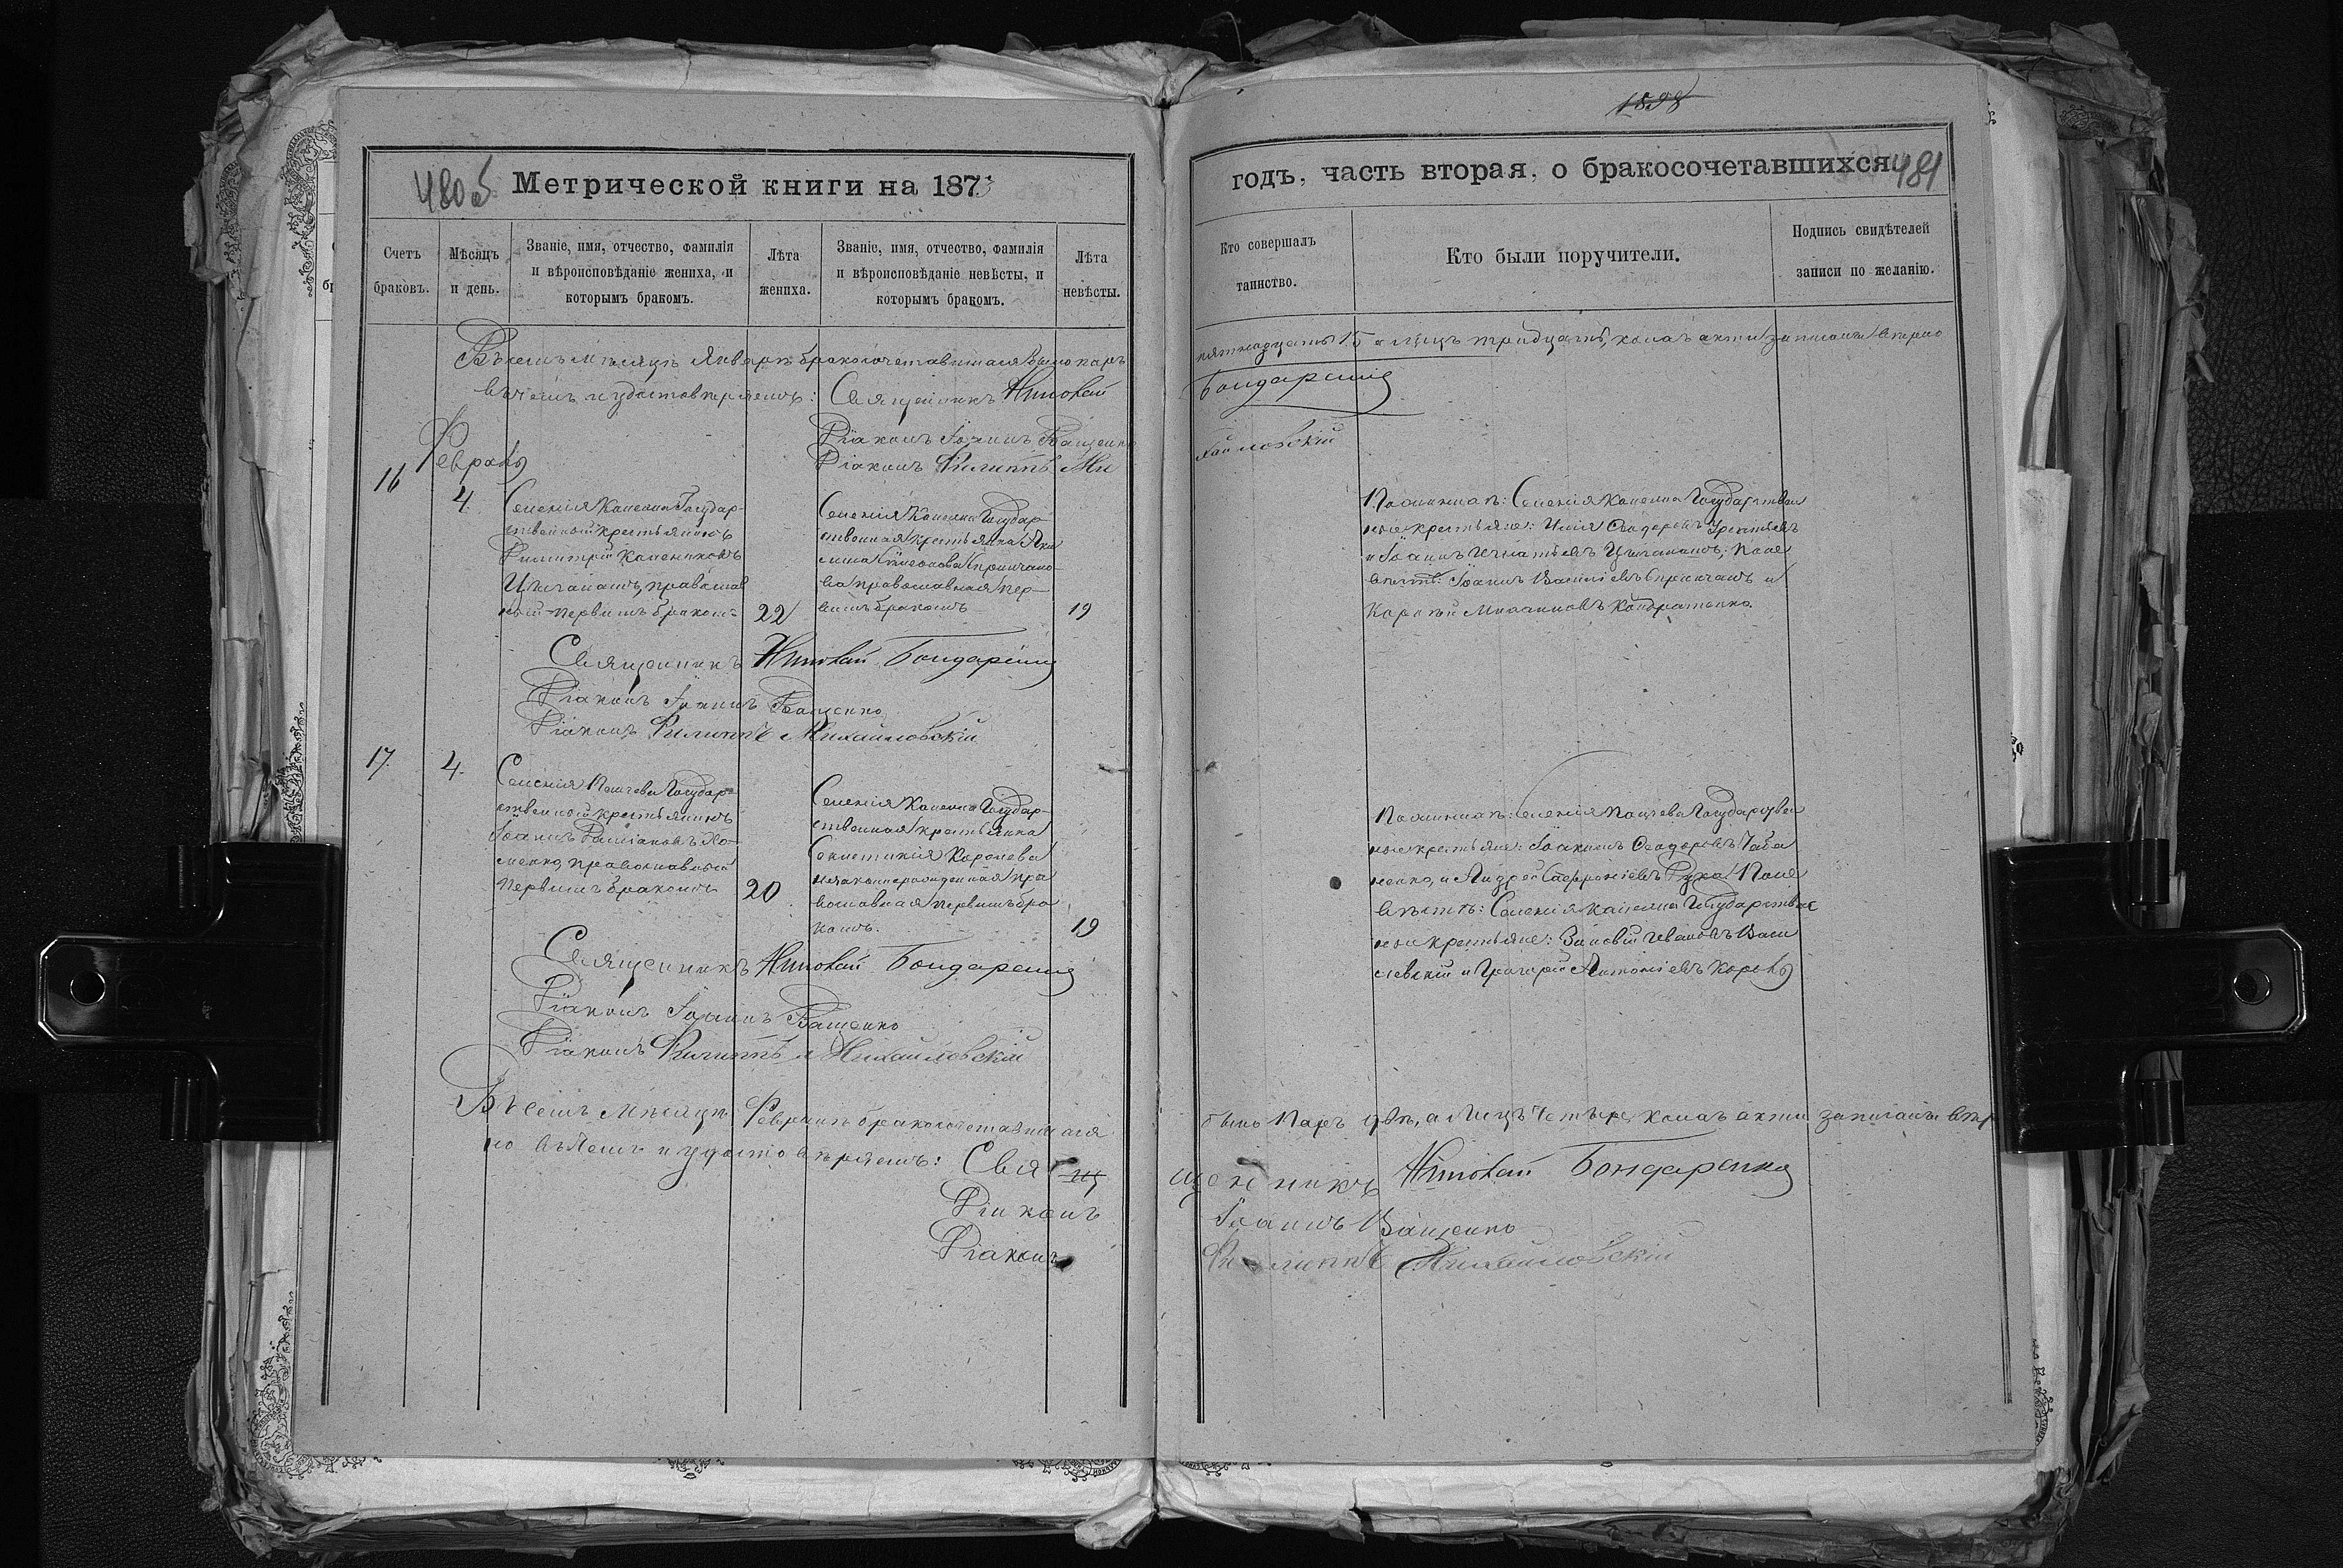 1898
480об
Метрической книги на 1873
годъ, часть вторая, о бракосочетавшихся
481
Счетъ браковъ.
Мѣсяцъ и день.
Званіе, имя, отчество, фамилія и вѣроисповѣданіе жениха, и которымъ бракомъ.
Лѣта жениха.
Званіе, имя, отчество, фамилія и вѣроисповѣданіе невѣсты, и которымъ бракомъ.
Лѣта невѣсты.
Кто совершалъ таинство.
Кто были поручители.
Подпись свидѣтелей записи по желанію.
Въ семъ мѣсяцѣ Январѣ бракосочетавшихся было паръ
пятнадцать 15 а лицъ тридцать, коихъ акты записаны вѣрно
въ чемъ и удостовѣряемъ: Священникъ Николай
Бондаренко
Діаконъ Іоаннъ Ващенко
Діаконъ Филиппъ Ми
хайловскій
Февраль
16
4.
Селенія Каменки Государ-
ственный крестьянинъ
Димитрій
православ
ный первымъ бракомъ
22
Селенія Каменки Государ-
ственная крестьянка
православная пер-
вымъ бракомъ
19
По женихѣ: Селенія Каменки Государствен
ные крестьяне: Илія Ѳеодоровъ
и Іоаннъ Игнатьевъ По не
вѣстѣ: Іоаннъ Василіевъ и
Кондратенко.
Священникъ Николай Бондаренко
Діаконъ Іоаннъ Ващенко
Діаконъ Филиппъ Михайловскій
17.
4.
Селенія Государ-
ственный крестьянинъ
Іоаннъ Даміановъ Хо-
менко, православный
первымъ бракомъ
20
Селенія Каменки Государ-
ственная крестьянка
Королева
незаконнорожденная пра
вославная первымъ бра
комъ.
19
По женихѣ: Селенія Государствен
ные крестьяне: Іоакимъ Ѳеодоровъ
и Андрей Рука По не
вѣстѣ: Селенія Каменки Государствен
ные крестьяне: Зиновій Ивановъ Васи
левскій и Григорій Антоніевъ Король
Священникъ Николай Бондаренко
Діаконъ Іоаннъ Ващенко
Діаконъ Филиппъ Михайловскій
Въ семъ мѣсяцѣ Февралѣ бракосочетавшихся
было паръ двѣ, а лицъ четыре, коихъ акты записаны вѣр
но въ чемъ и удостовѣряемъ: Свя
щенникъ Николай Бондаренко
Діаконъ
Іоаннъ Ващенко
Діаконъ
Филиппъ Михайловскій